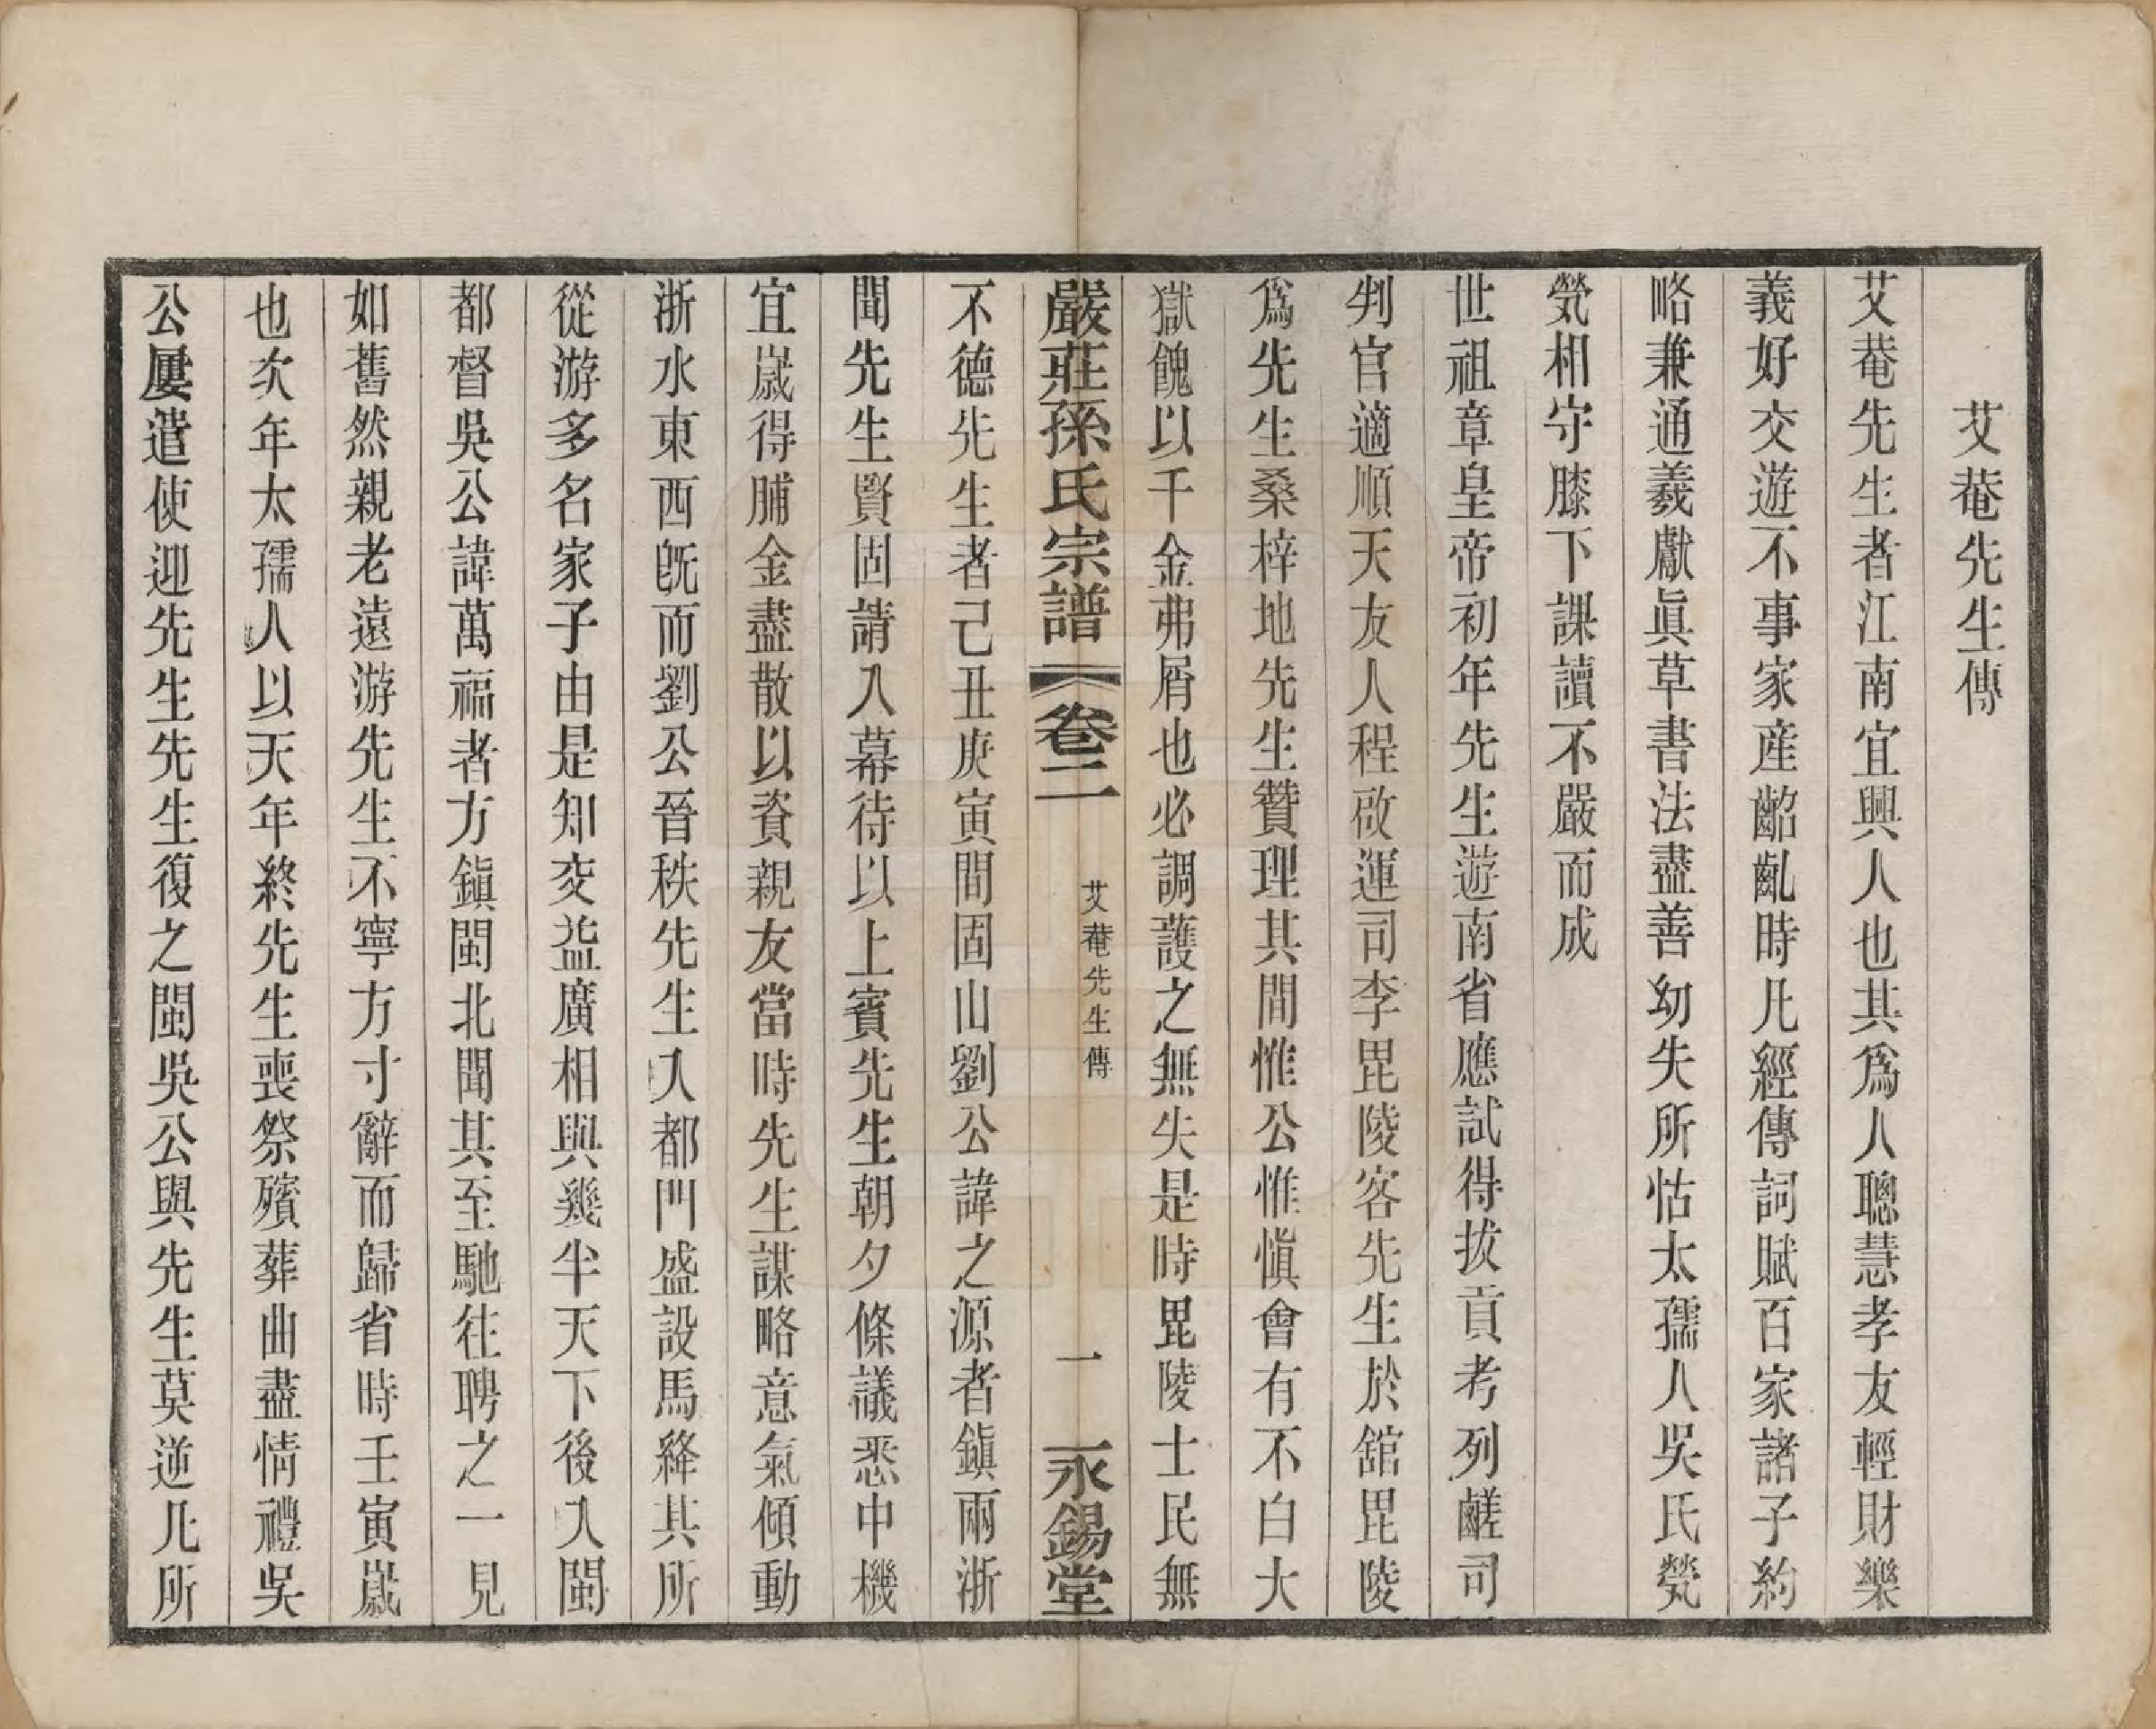 艾菴先生傳
艾菴先生者江南宜興人也其爲人聰慧孝友輕財樂
義好交遊不事家產齠齓時凡經傳詞賦百家諸子約
略兼通羲獻眞草書法盡善幼失所怙太孺人吳氏煢
煢相守膝下課讀不嚴而成
世祖章皇帝初年先生遊南省應試得拔貢考列鹺司
判官適順天友人程啟運司李毘陵客先生於舘毘陵
爲先生桑梓地先生贊理其間惟公惟愼會有不白大
獄餽以千金弗屑也必調護之無失是時毘陵士民無
嚴莊孫氏宗譜
卷二
艾菴先生傳
一
永錫堂
不德先生者己丑庚寅間固山劉公諱之源者鎭兩浙
聞先生賢固請入幕待以上賓先生朝夕條議悉中機
宜歲得脯金盡散以資親友當時先生謀略意氣傾動
浙水東西旣而劉公晉秩先生入都門盛設馬絳其所
從游多名家子由是知交益廣相與幾半天下後入閩
都督吳公諱萬福者方鎭閩北聞其至馳往聘之一見
如舊然親老遠游先生不寧方寸辭而歸省時壬寅歲
也次年太孺人以天年終先生喪祭殯葬曲盡情禮吳
公屢遣使迎先生先生復之閩吳公與先生莫逆凡所